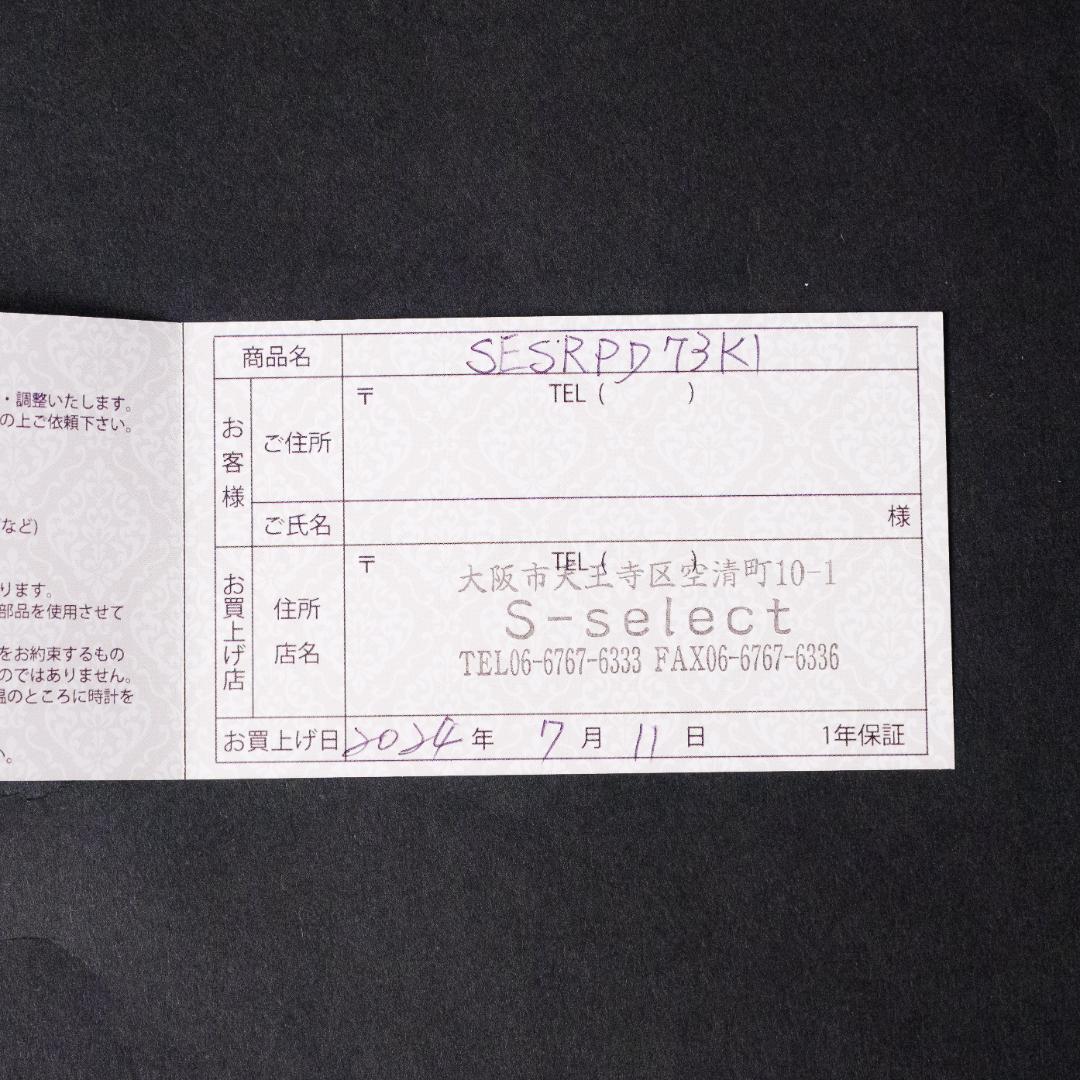 ・調整いたします。
の上ご依頼下さい。
など)
ります。
部品を使用させて
をお約束するもの
のではありません。
温のところに時計を
い。
商品名 SESRPD73K1
お客様
ご住所 〒 TEL ( )
ご氏名 様
お買上げ店
住所
店名
〒 TEL ( )
大阪市天王寺区空清町10-1
S-select
TEL06-6767-6333 FAX06-6767-6336
お買上げ日 2024 年 7 月 11 日 1年保証